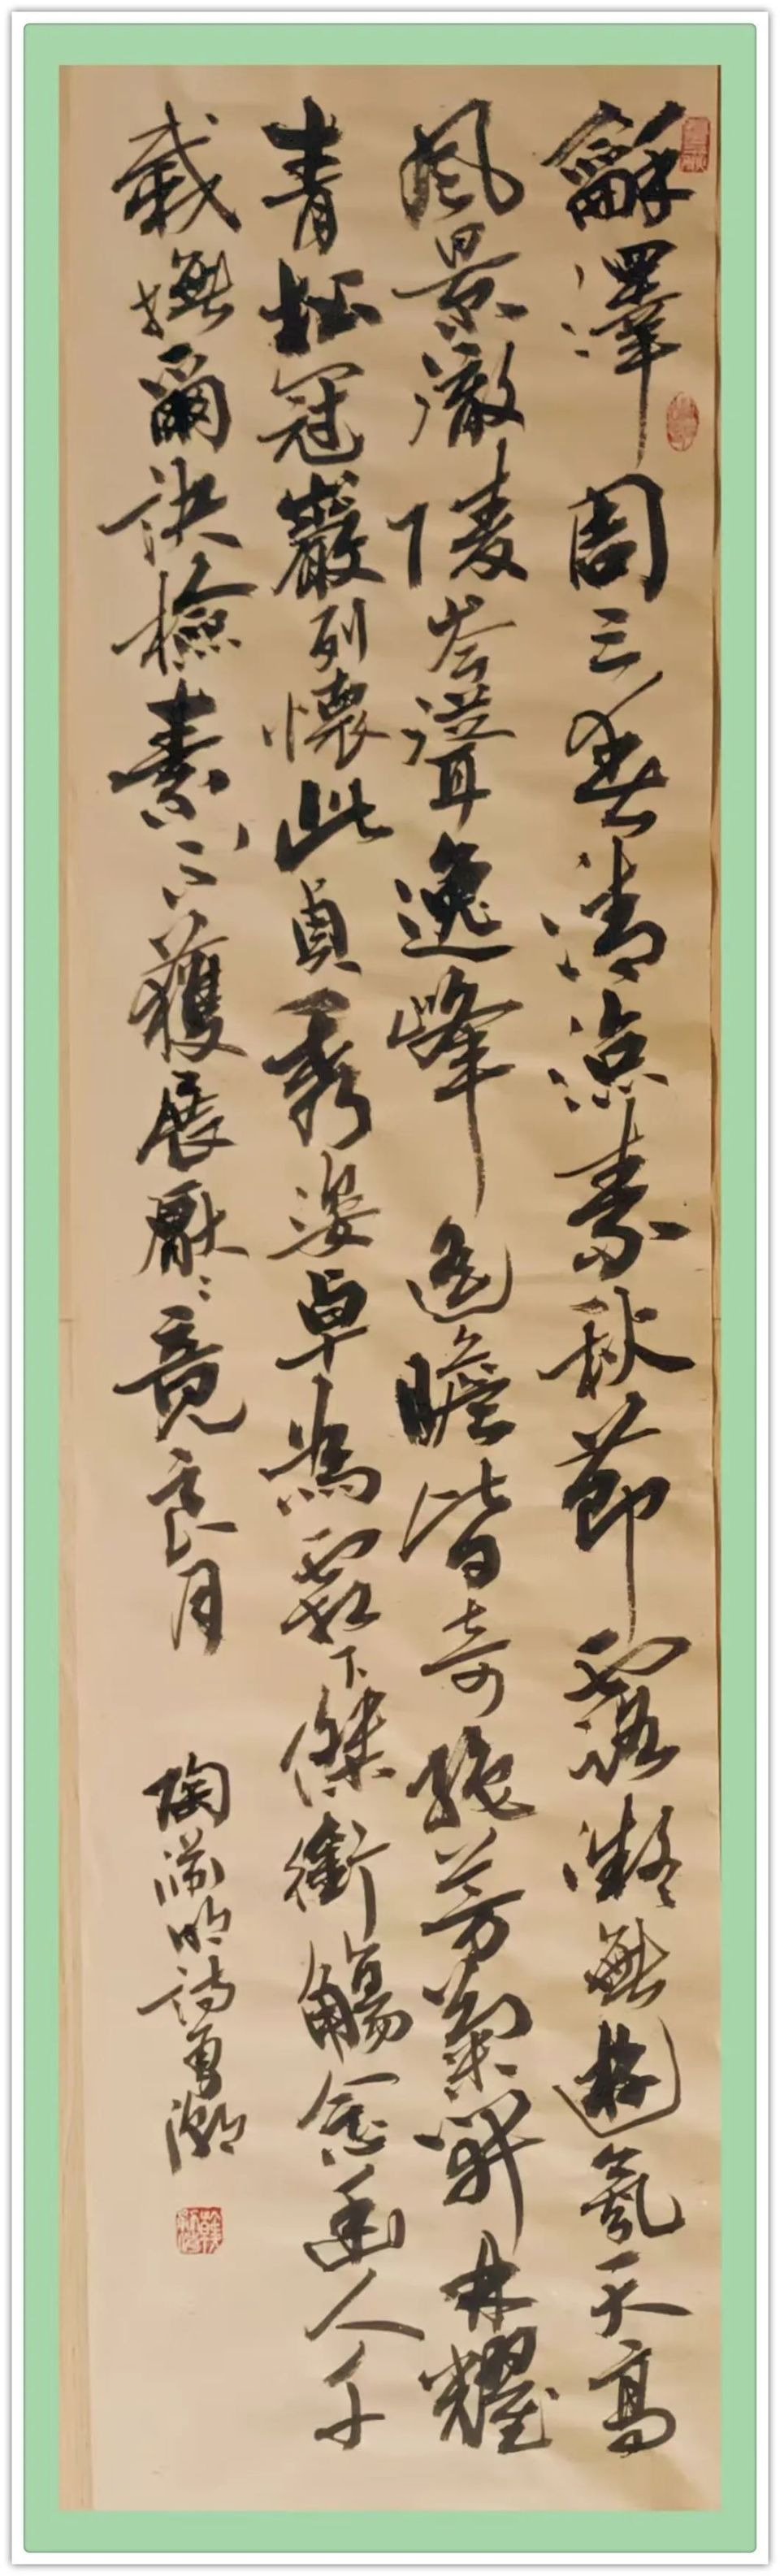 龢澤周三春清涼素秋節露凝無遊氛天高
風景澈陵岑聳逸峰遙瞻皆奇絕芳菊開林耀
青松冠巖列懷此貞秀姿卓為霜下傑銜觴念幽人千
載撫爾訣檢素不獲展厭〻竟良月
陶淵明詩勇潮